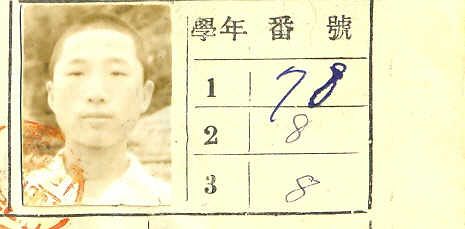 學年 番 號
1 78
2 8
3 8